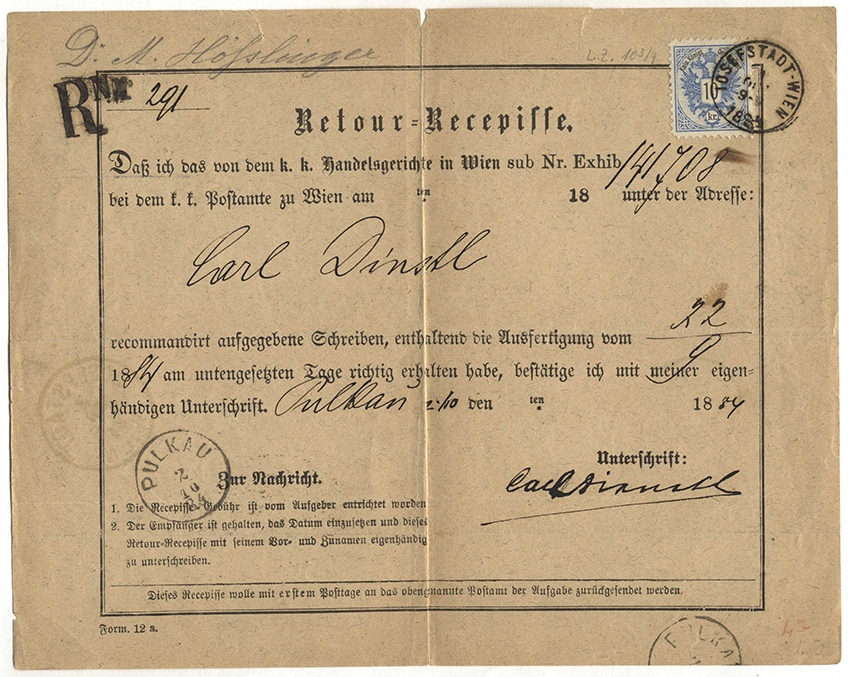 Dr. M. Höfslinger
L.Z. 103/4
R Nr 291
10
kr
JOSEFSTADT-WIEN
1884
Retour=Recepisse.
Daß ich das von dem k. k. Handelsgerichte in Wien sub Nr. Exhib 141708
bei dem k. k. Postamte zu Wien am ten 18 unter der Adresse:
Carl Dinstl
recommandirt aufgegebene Schreiben, enthaltend die Ausfertigung vom 22
9
1884 am untengesetzten Tage richtig erhalten habe, bestätige ich mit meiner eigen=
händigen Unterschrift. Pulkau 2/10 den ten 1884
PULKAU
2
10
84
Zur Nachricht.
Unterschrift:
Carl Dienstl
1. Die Recepisse-Gebühr ist vom Aufgeber entrichtet worden
2. Der Empfänger ist gehalten, das Datum einzusetzen und dieses
Retour-Recepisse mit seinem Vor- und Zunamen eigenhändig
zu unterschreiben.
Dieses Recepisse wolle mit erstem Posttage an das obengenannte Postamt der Aufgabe zurückgesendet werden.
Form. 12 a.
PULKA